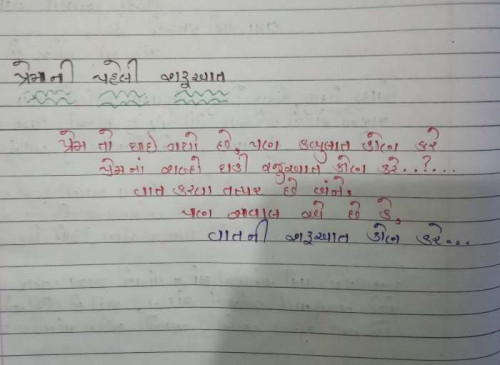 પ્રેમની પહેલી શરૂઆત
પ્રેમ તો થઈ ગયો છે, પણ કબુલાત કોણ કરે
પ્રેમનાં શબ્દો થકી રજુઆત કોણ કરે..?...
વાત કરવા તત્પર છે બંને,
પણ સવાલ એ છે કે,
વાતની શરૂઆત કોણ કરે...